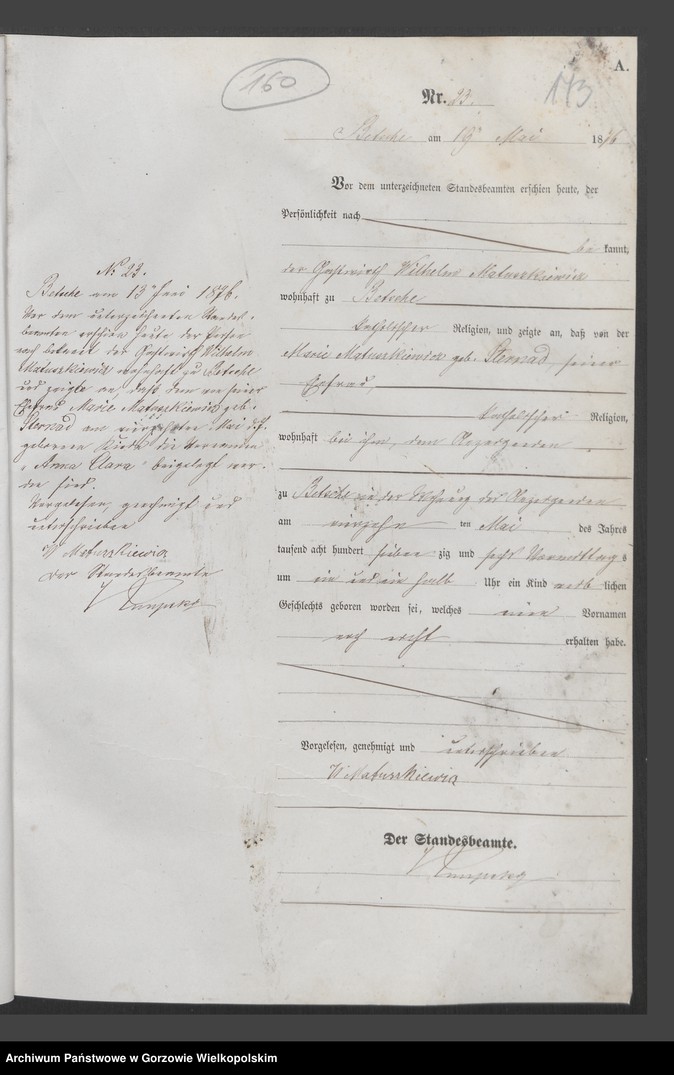 160
A.
113
Nr. 23.
Betsche am 19 Mai 1876
Vor dem unterzeichneten Standesbeamten erschien heute, der
Persönlichkeit nach
be kannt,
der Gastwirth Wilhelm Matuszkiewicz
wohnhaft zu Betsche
katholischer Religion, und zeigte an, daß von der
Marie Matuszkiewicz geb. Stornad, seiner
Ehefrau,
katholischer Religion,
wohnhaft bei ihm, dem Anzeigenden
zu Betsche in der Wohnung des Anzeigenden
am vierzehn ten Mai des Jahres
tausend acht hundert sieben zig und sechs Vormittag s
um ein und ein halb Uhr ein Kind weib lichen
Geschlechts geboren worden sei, welches einen Vornamen
noch nicht erhalten habe.
Vorgelesen, genehmigt und unterschrieben
W Matuszkiewicz
Der Standesbeamte.
No 23.
Betsche am 13 Juni 1876.
Vor dem unterzeichneten Standes-
beamten erschien heute der Person
nach bekannt der Gastwirth Wilhelm
Matuszkiewicz wohnhaft zu Betsche
und zeigte an, daß dem von seiner
Ehefrau Marie Matuszkiewicz geb.
Stornad am vierzehnten Mai d.J.
geborenen Kinde die Vornamen
"Anna Clara" beigelegt wor-
den sind.
Vorgelesen, genehmigt und
unterschrieben
W Matuszkiewicz
Der Standesbeamte
Archiwum Państwowe w Gorzowie Wielkopolskim